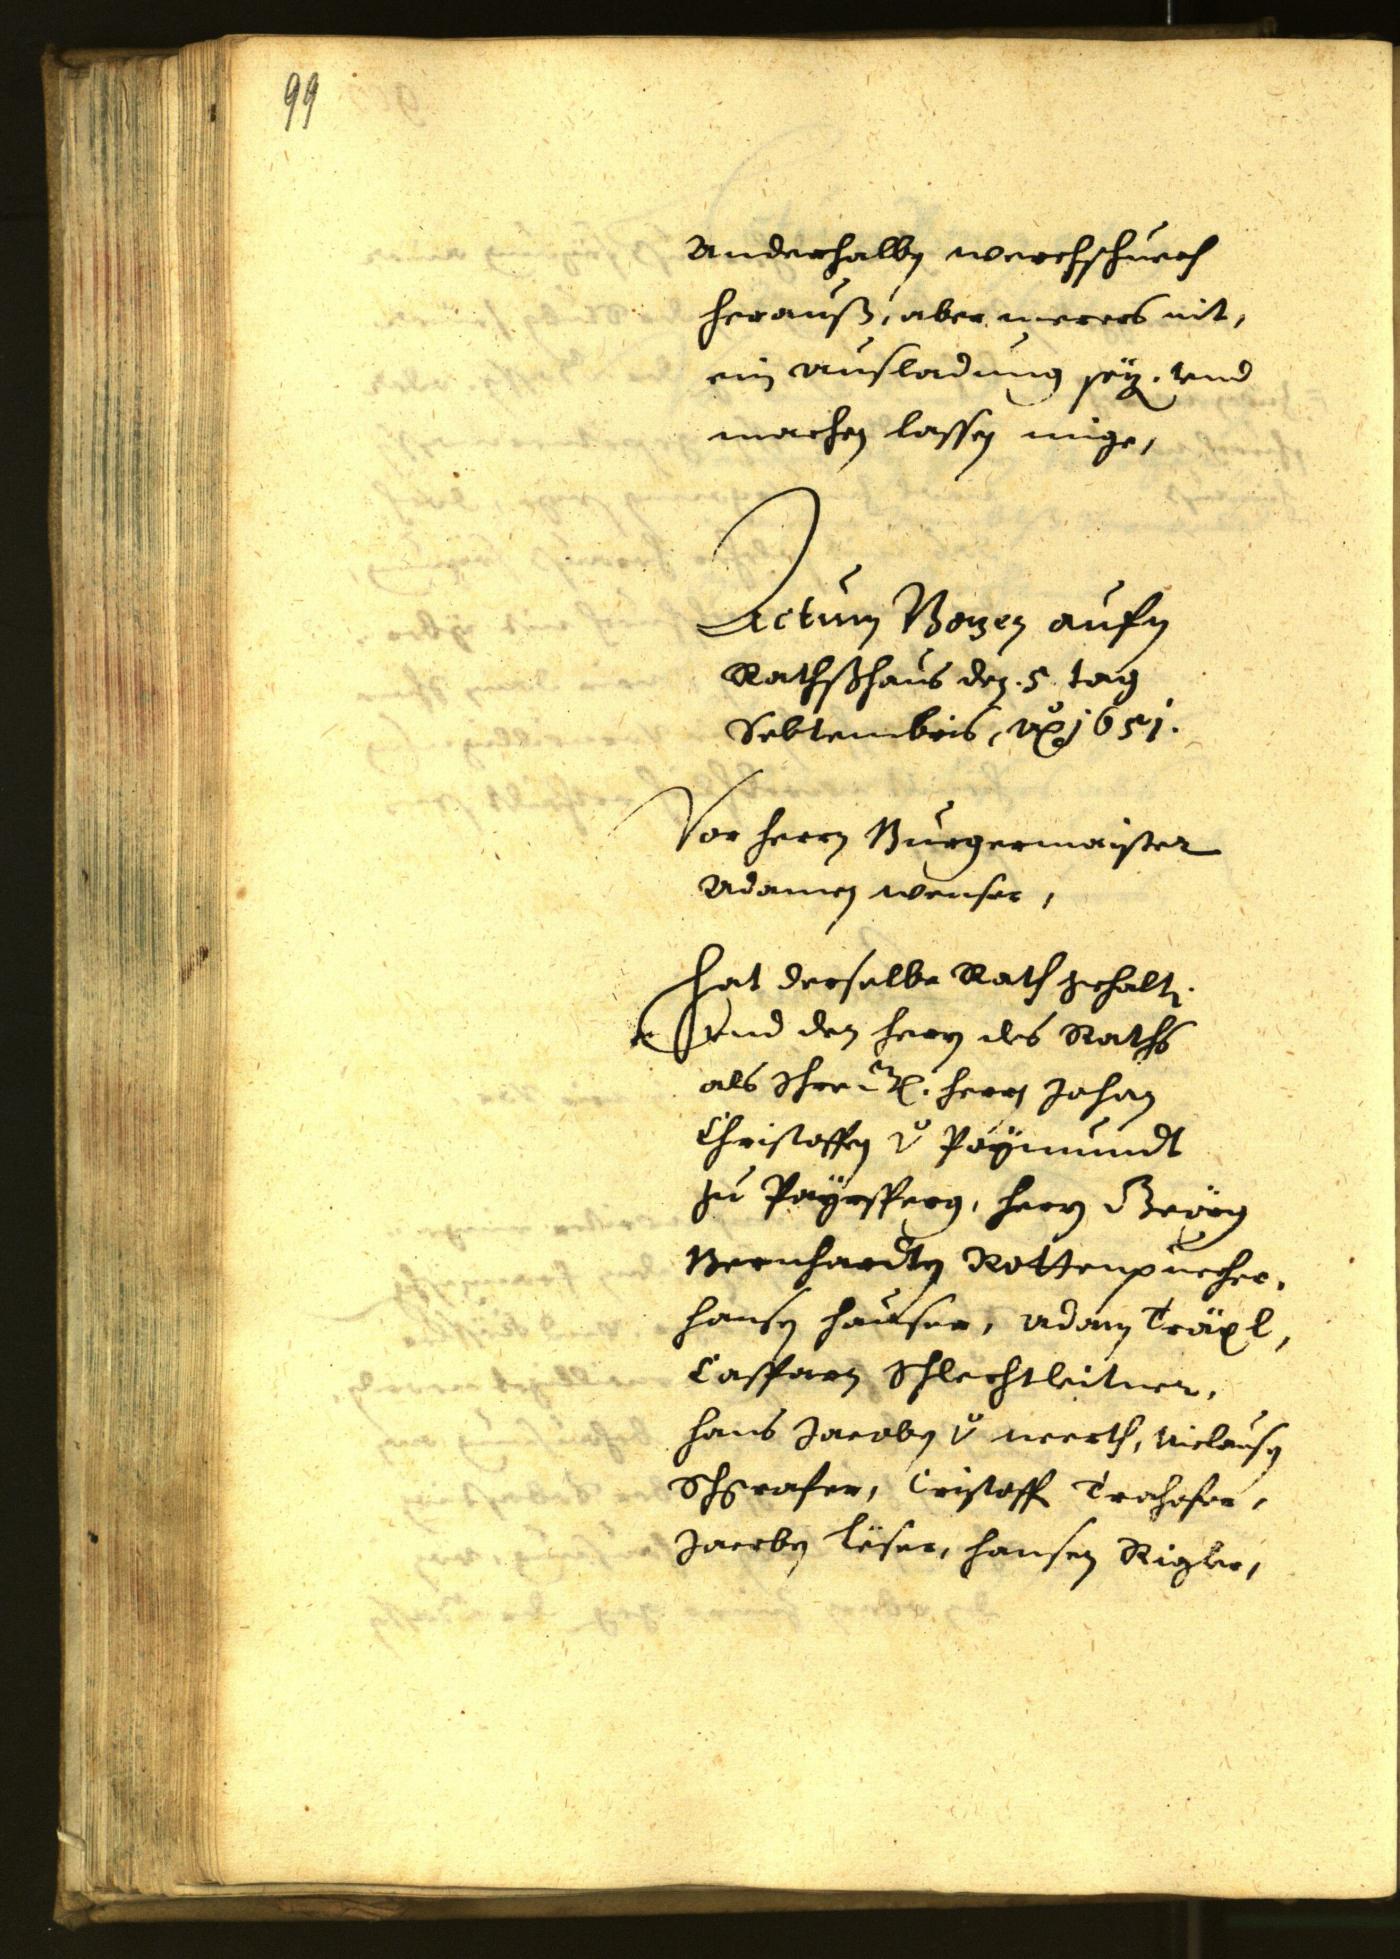 99
Anderhalbn werchschuech
herauß, aber merers nit,
ein ausladung sey. vnd
machen lassen mige,
Actum Bozen aufn
Rathßhaus den .5. tag
Sebtembris, Ao 1651.
Vor herrn Burgermaister
Adamen wenser,
Hat derselbe Rath gehaltn.
vnd den hern des Raths
als Ihre herrn Johan
Christoffen v Paÿrnundt
zu Paÿrsperg, hern Geörg
Bernhardtn Rottenpuecher,
hansn hauser, Adam Träxl,
Casparn Schlechtleitner,
hans Jacobn v werth, Niclausn
Schgrafer, Cristoff Trohofer,
Jacobn leser, hansen Rigler,